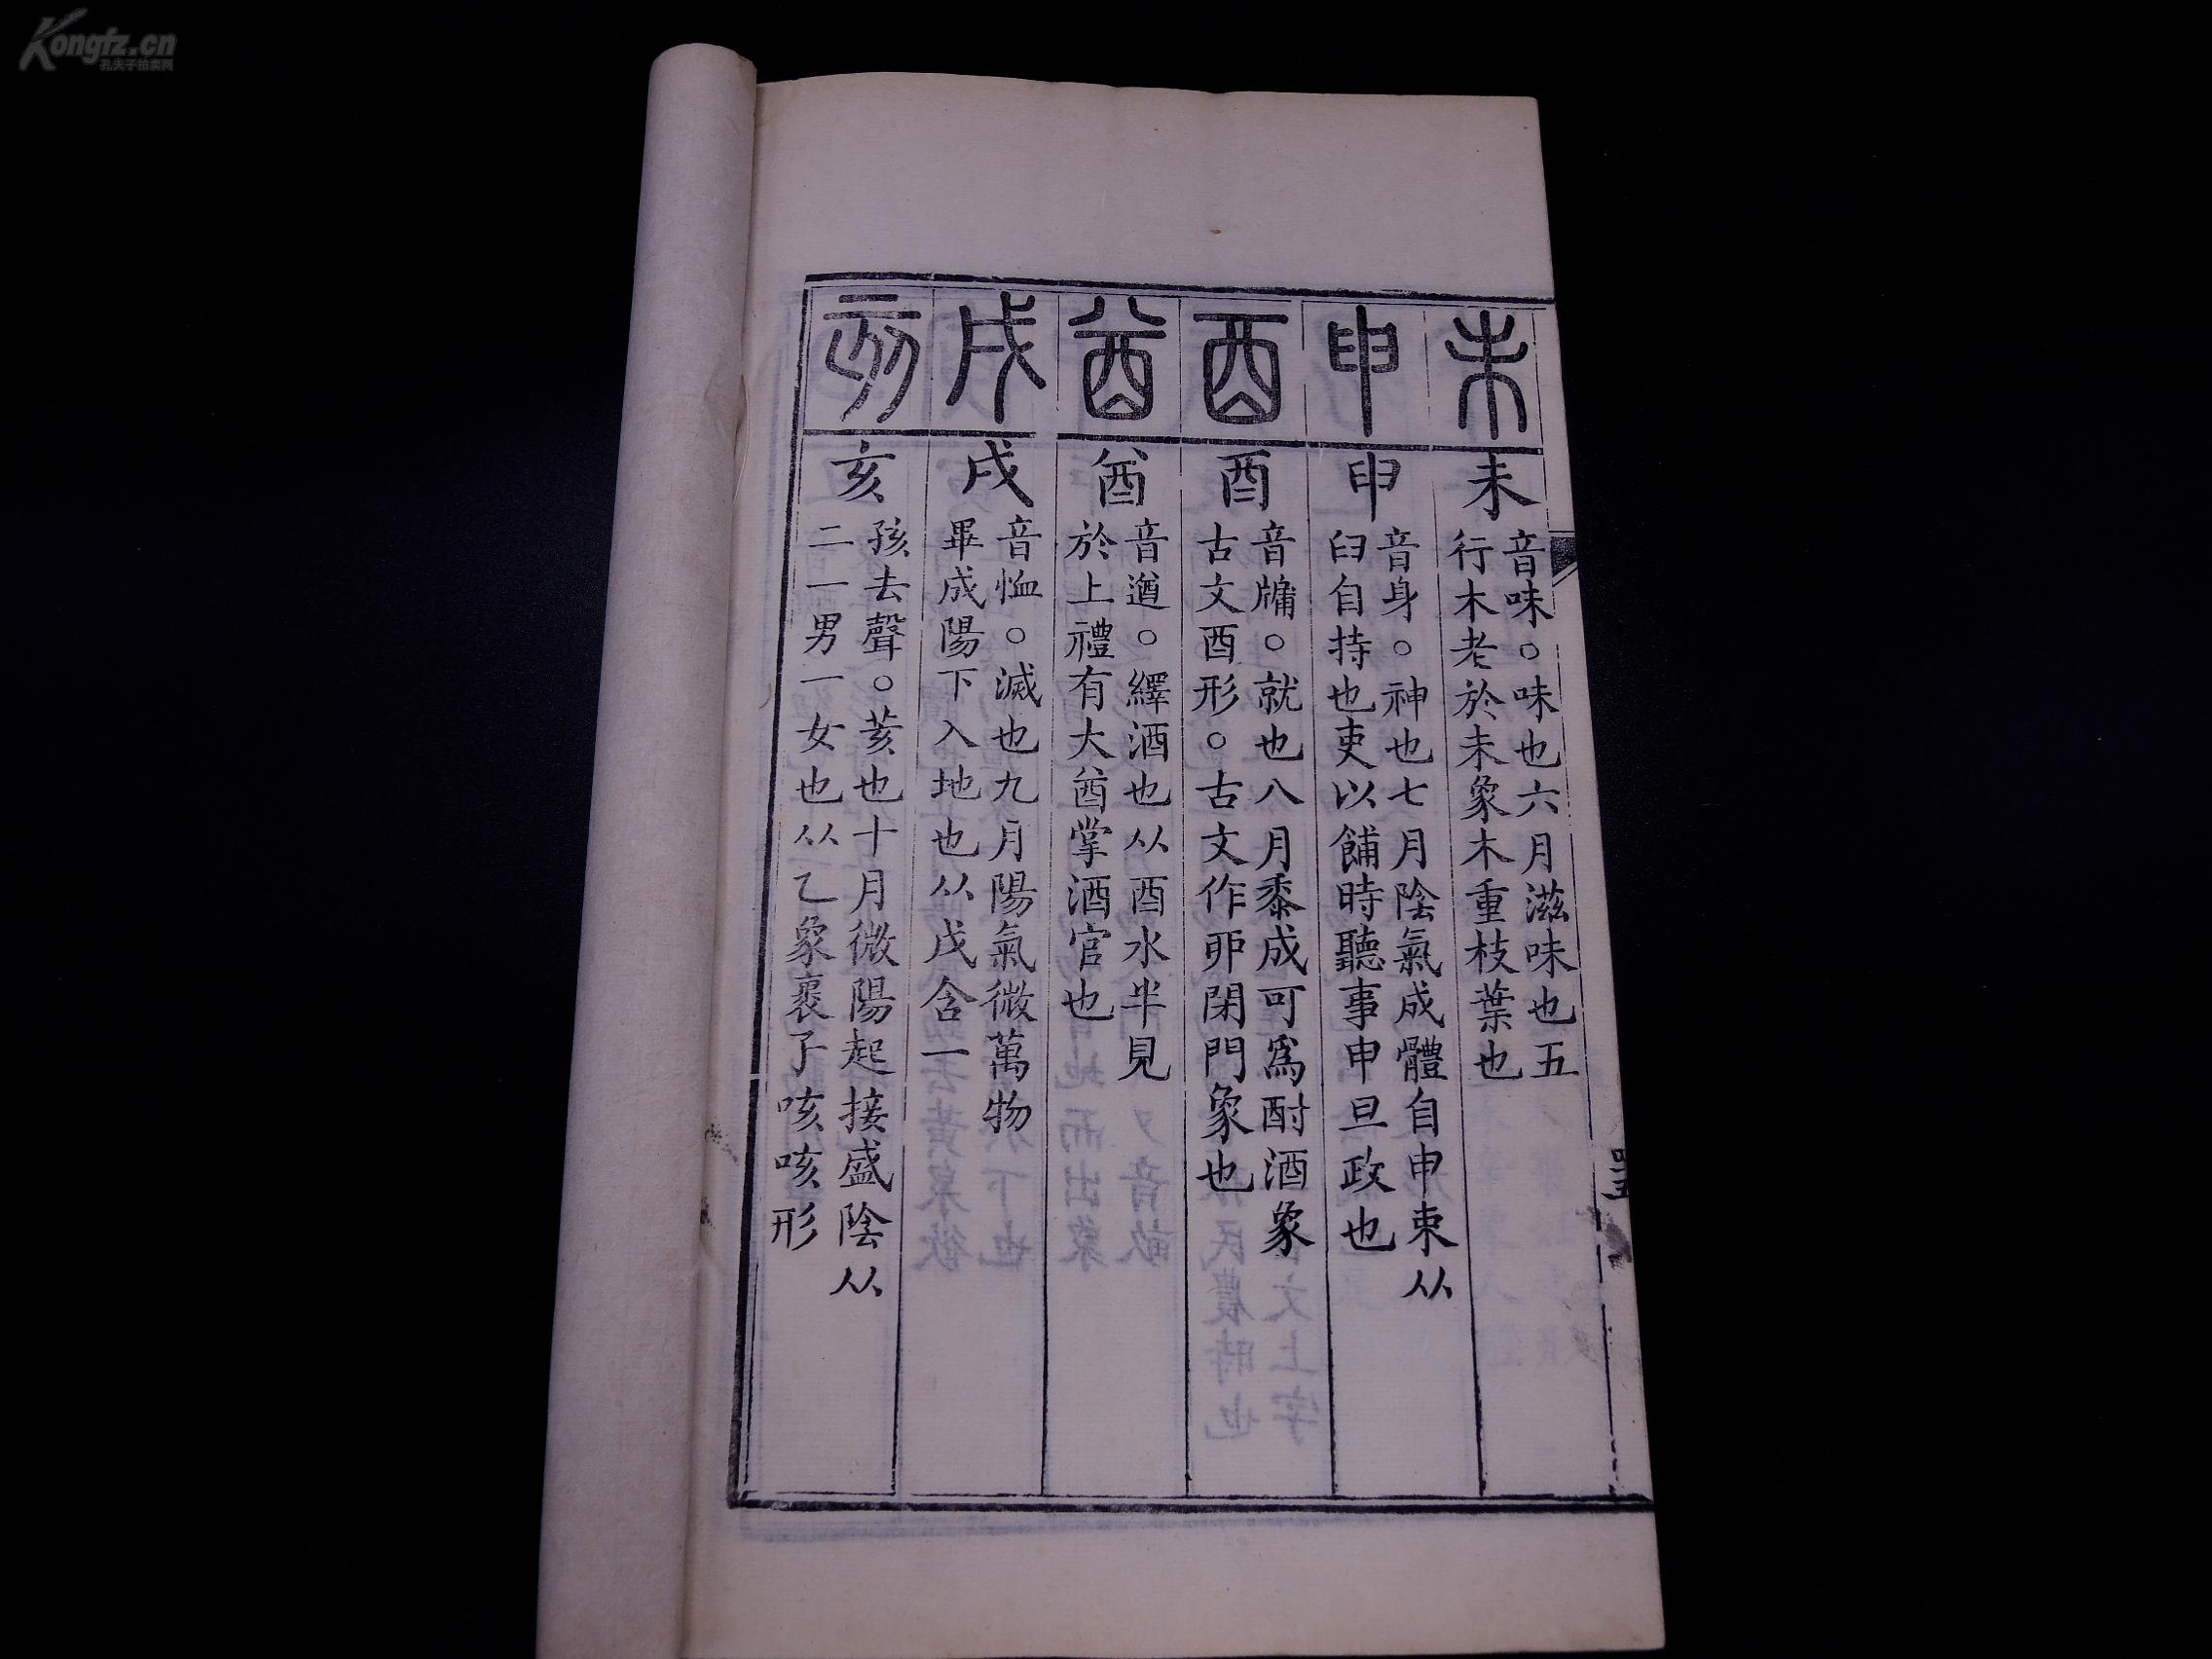 Kongfz.cn
孔夫子拍卖网
未
未
音味。味也六月滋味也五
行木老於未象木重枝葉也
申
申
音身。神也七月陰氣成體自申束从
臼自持也吏以餔時聽事申旦政也
酉
酉
音牗。就也八月黍成可爲酎酒象
古文酉形。古文作丣閉門象也
酋
酋
音遒。繹酒也从酉水半見
於上禮有大酋掌酒官也
戌
戌
音恤。滅也九月陽氣微萬物
畢成陽下入地也从戊含一
亥
亥
孩去聲。荄也十月微陽起接盛陰从
二一男一女也从乙象褢子咳咳形